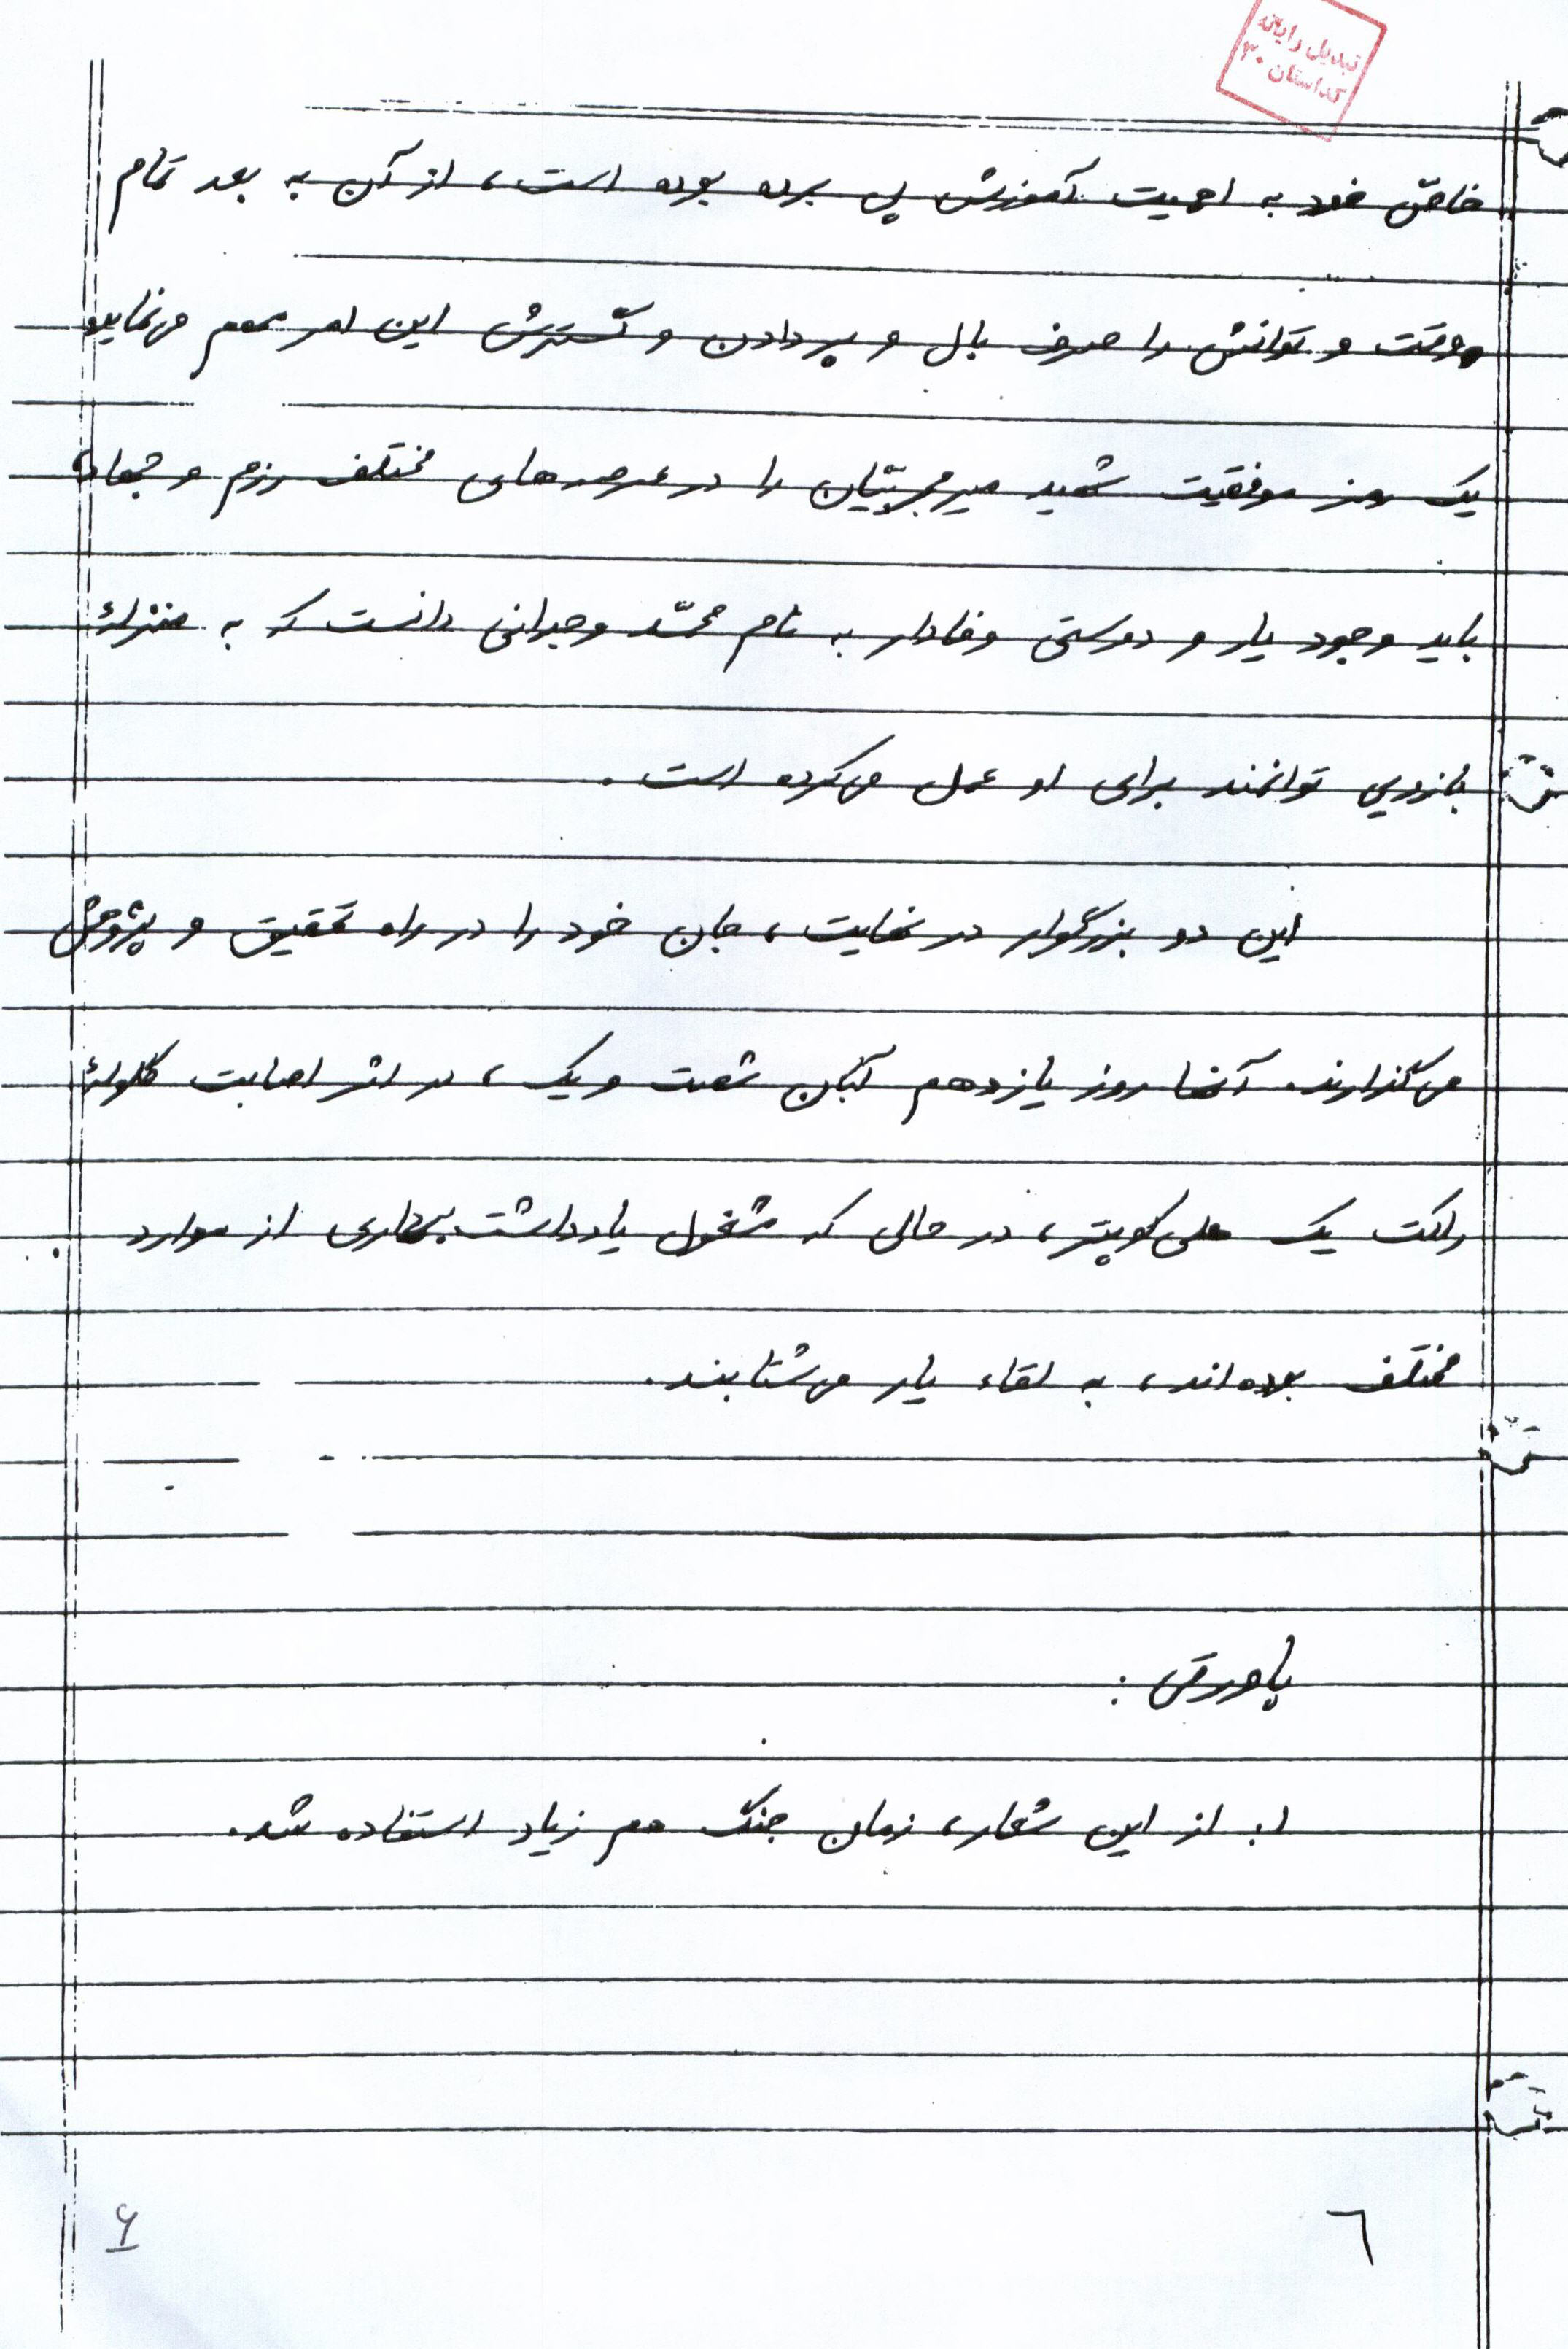 تبدیل رایانه
کداستان ۳۰
خاصّ خود به اهمیت آموزش پی برده بوده است، از آن به بعد تمام
وقت و توانش را صرف بال و پر دادن و گسترش این امر مهم می‌نماید
یک رمز موفقیت شهید میرمجربیّان را در عرصه‌های مختلف رزم و جهاد
باید وجود یار و دوستی وفادار به نام محمّد وجدانی دانست که به منزلهٔ
بازویی توانمند برای او عمل می‌کرده است.
این دو بزرگوار در نهایت، جان خود را در راه تحقیق و پژوهش
می‌گذارند. آنها روز یازدهم آبان شصت و یک، در اثر اصابت گلولهٔ
راکت یک هلی‌کوپتر، در حالی که مشغول یادداشت‌برداری از موارد
مختلف بوده‌اند، به لقاء یار می‌شتابند.
پاورقی:
۱ـ از این شعار، زمان جنگ هم زیاد استفاده شد.
٦
۶